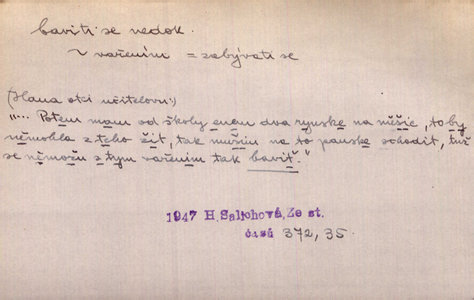 baviti se nedok.
~ vařením = zabývati se
(Hana otci učitelovu:)
"... Potem mam od školy enem dva rynske na měšic, to by
němohla z teho žit, tak mušim na to panske ochodit, tuž
se němožu z tym vařenim tak baviť."
1947 H. Salichová, Ze st.
časů 372, 35.